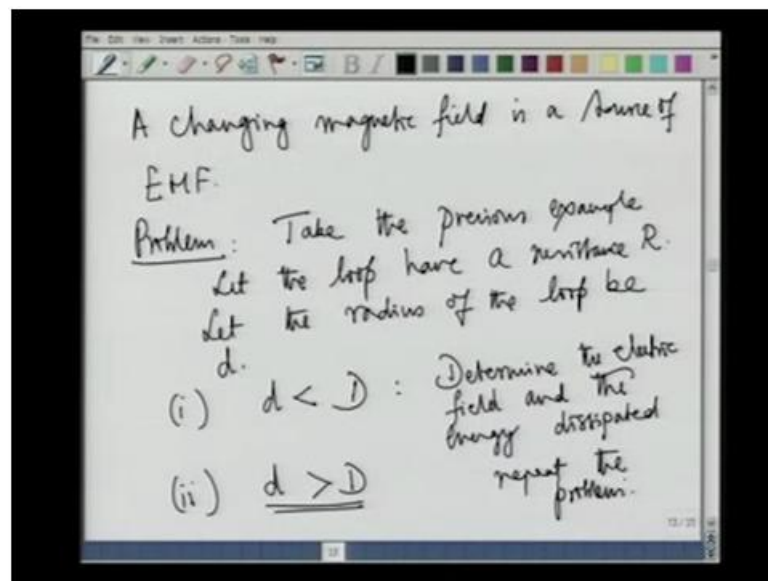 File Edit View Insert Actions Tools Help
B I
A changing magnetic field is a source of
EMF.
Problem: Take the previous example
Let the loop have a resistance R.
Let the radius of the loop be
d.
(i) d < D : Determine the electric
field and the
energy dissipated
(ii) d > D repeat the
problem.